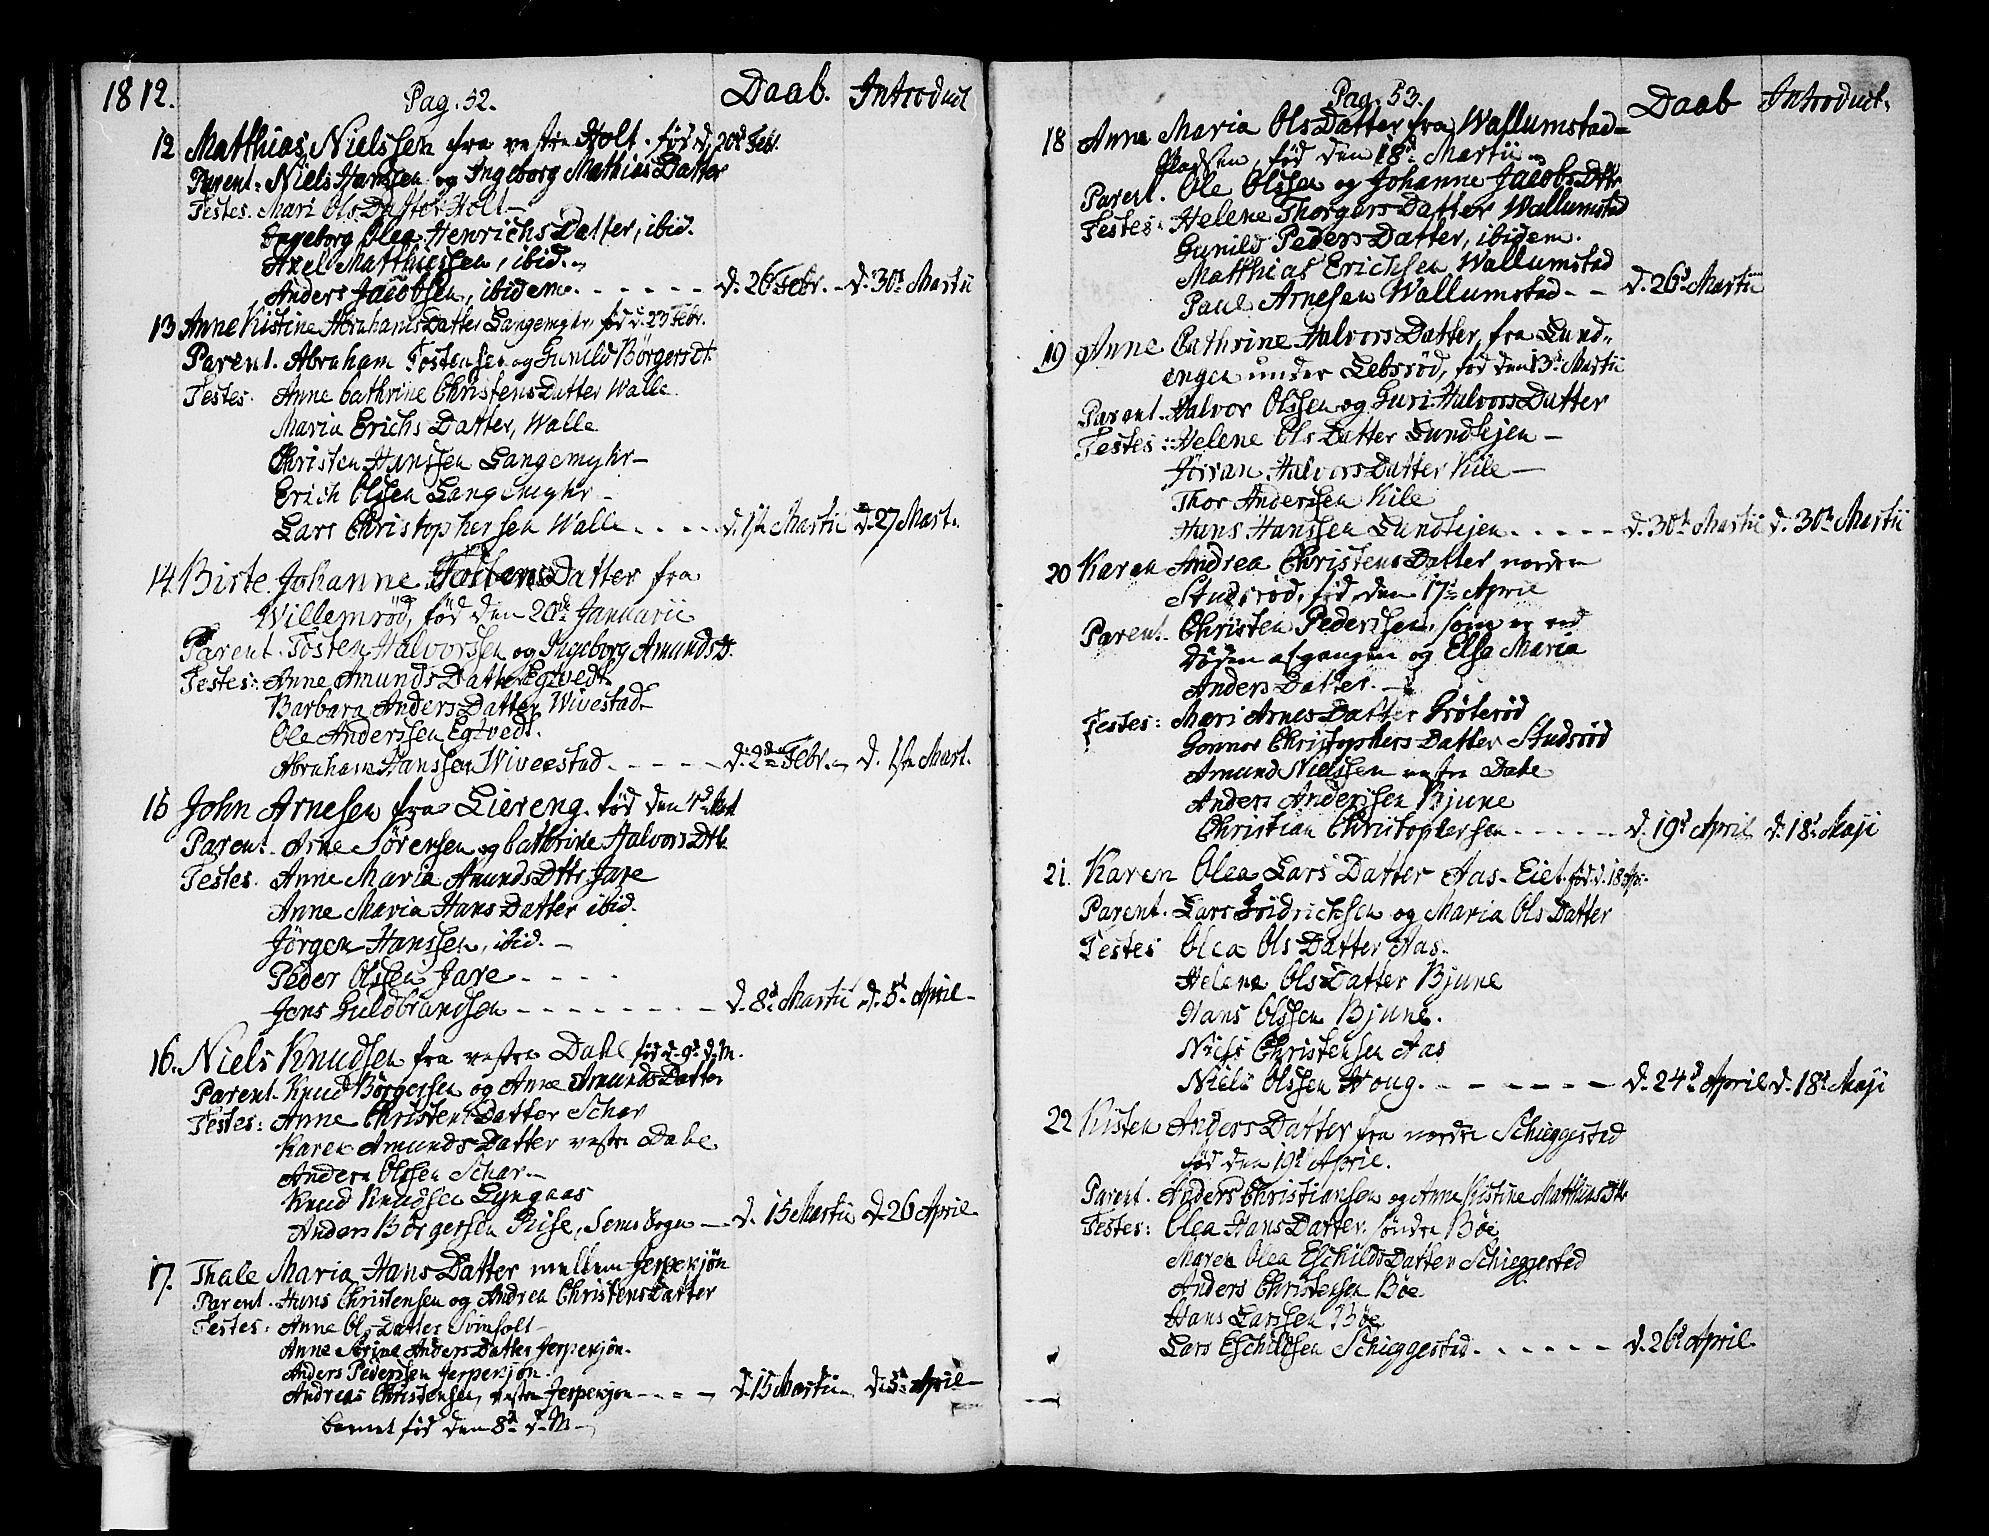 1812.
Pag. 52. Daab. Introduct
12 Matthias Nielssen fra vestre Holt. fød d. 20d Feb.
Parent: Niels Hanssen og Ingeborg Mathias Datter
Testes. Mari Ols Datter Holt
Ingeborg Olea Henrichs Datter, ibid.
Axel Matthiessen, ibid.
Anders Jacobsen, ibidem. d. 26 Febr. d. 30t Martii
13 Anne Kistine Abrahams Datter Langemyhr, fød d. 23 Febr.
Parent. Abraham Tostensen og Gunild Börgersdt.
Testes. Anne Cathrine Christens Datter Walle
Maria Erichs Datter, Walle
Christen Hanssen Langemyhr
Erich Olssen Langemyhr
Lars Christophersen Walle d. 1ste Martii d. 27 Mart.
14. Birte Johanne Tostens Datter fra
Willemröd, fød den 20de Januarii
Parent. Tosten Halvorssen og Ingeborg Amunds D.
Testes: Anne Amunds Datter Egtvedt
Barbara Anders Datter Wivestad
Ole Anderssen Egtvedt.
Abraham Hanssen Wiveestad d. 2den Febr. d. 1ste Mart.
15 John Arnesen fra Liereng. fød den 4d Mart
Parent. Arne Sörensen og Cathrine Halvors Dtr.
Testes. Anne Maria Amunds Dttr Jare
Anne Maria Hans Datter ibid.
Jörgen Hanssen, ibid.
Peder Olssen Jare
Jens Guldbrandsen d. 8d Martii d. 5t April
16. Niels Knudsen fra vestre Dahl fød d. 9d d. M.
Parent. Knud Börgersen og Anne Amunds Datter
Testes: Anne Christens Datter Schav
Karen Amunds Datter vestre Dahl
Anders Olssen Schav
Knud Knudsen Lyngaas
Anders Börgersen Riise, Sems Sogn d. 15 Martii d. 26 April
17. Thale Maria Hans Datter mellem Jerpekjön
Parent. Hans Christensen og Andrea Christens Datter
Testes: Anne Ols Datter Svinholt
Anne Sörine Anders Datter Jerpekjön.
Anders Pederssen Jerpekjön.
Andreas Christensen, vestre Jerpekjön d. 15 Martii d. 5t April
barnet fød den 8d d. M.
Pag. 53. Daab Introduct.
18 Anne Maria Ols Datter fra Wallumstad-
Pladsen, fød den 18d Martii
Parent. Ole Olssen og Johanne Jacobs Dttr
Testes: Helene Thorgers Datter Wallumstad
Gunild Peders Datter, ibidem.
Matthias Erichsen Wallumstad
Paul Arnesen Wallumstad d. 26d Martii
19 Anne Cathrine Halvors Datter, fra Lund-
engen under Lebsröd, fød den 13d Martii
Parent. Halvor Olssen og Guri Halvors Datter
Testes: Helene Ols Datter Lundtejen
Jörran Halvors Datter Kile
Thor Anderssen Kile
Hans Hanssen Lundtejen d. 30te Martii d. 30te Martii
20 Karen Andrea Christens Datter nordre
Studsröd, fød den 17d April
Parent. Christen Pederssen, som er ved
Döden afgangen og Else Maria
Anders Datter.
Testes: Mari Arnes Datter Gröteröd
Gonnor Christophers Datter Studsröd
Amund Nielssen vestre Dahl
Anders Anderssen Bjune
Christian Christophersen d. 19d April d. 18d Maji
21. Karen Olea Lars Datter Aas-Eiet. fød d. 18 Apr.
Parent. Lars Fridrichsen og Maria Ols Datter
Testes Olea Ols Datter Aas.
Helene Ols Datter Bjune
Hans Olssen Bjune.
Niels Christensen Aas
Niels Olssen Houg. d. 24d April d. 18d Maji
22 Kisten Anders Datter fra nordre Schieggestad
fød den 19d April.
Parent. Anders Christiansen og Anne Kistine Matthias Dttr
Testes: Olea Hans Datter, söndre Böe
Maren Olea Eschilds Datter Schieggestad
Anders Christensen Böe
Hans Larssen Böe
Lars Eschildsen Schieggestad. d. 26d April